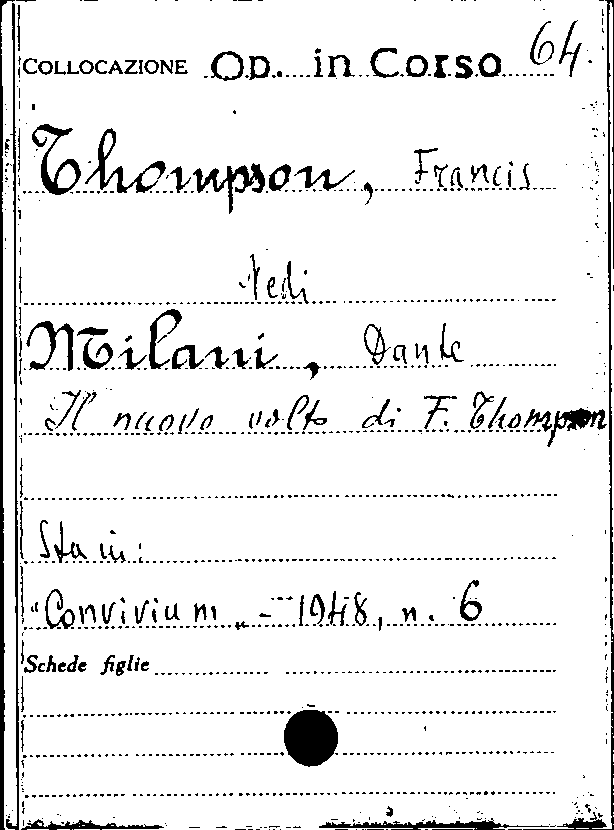 COLLOCAZIONE Op. in Corso 64.
Thompson, Francis
Vedi
Milani, Dante
Il nuovo volto di F. Thompson
Sta in:
"Convivium" - 1948, n. 6
Schede figlie